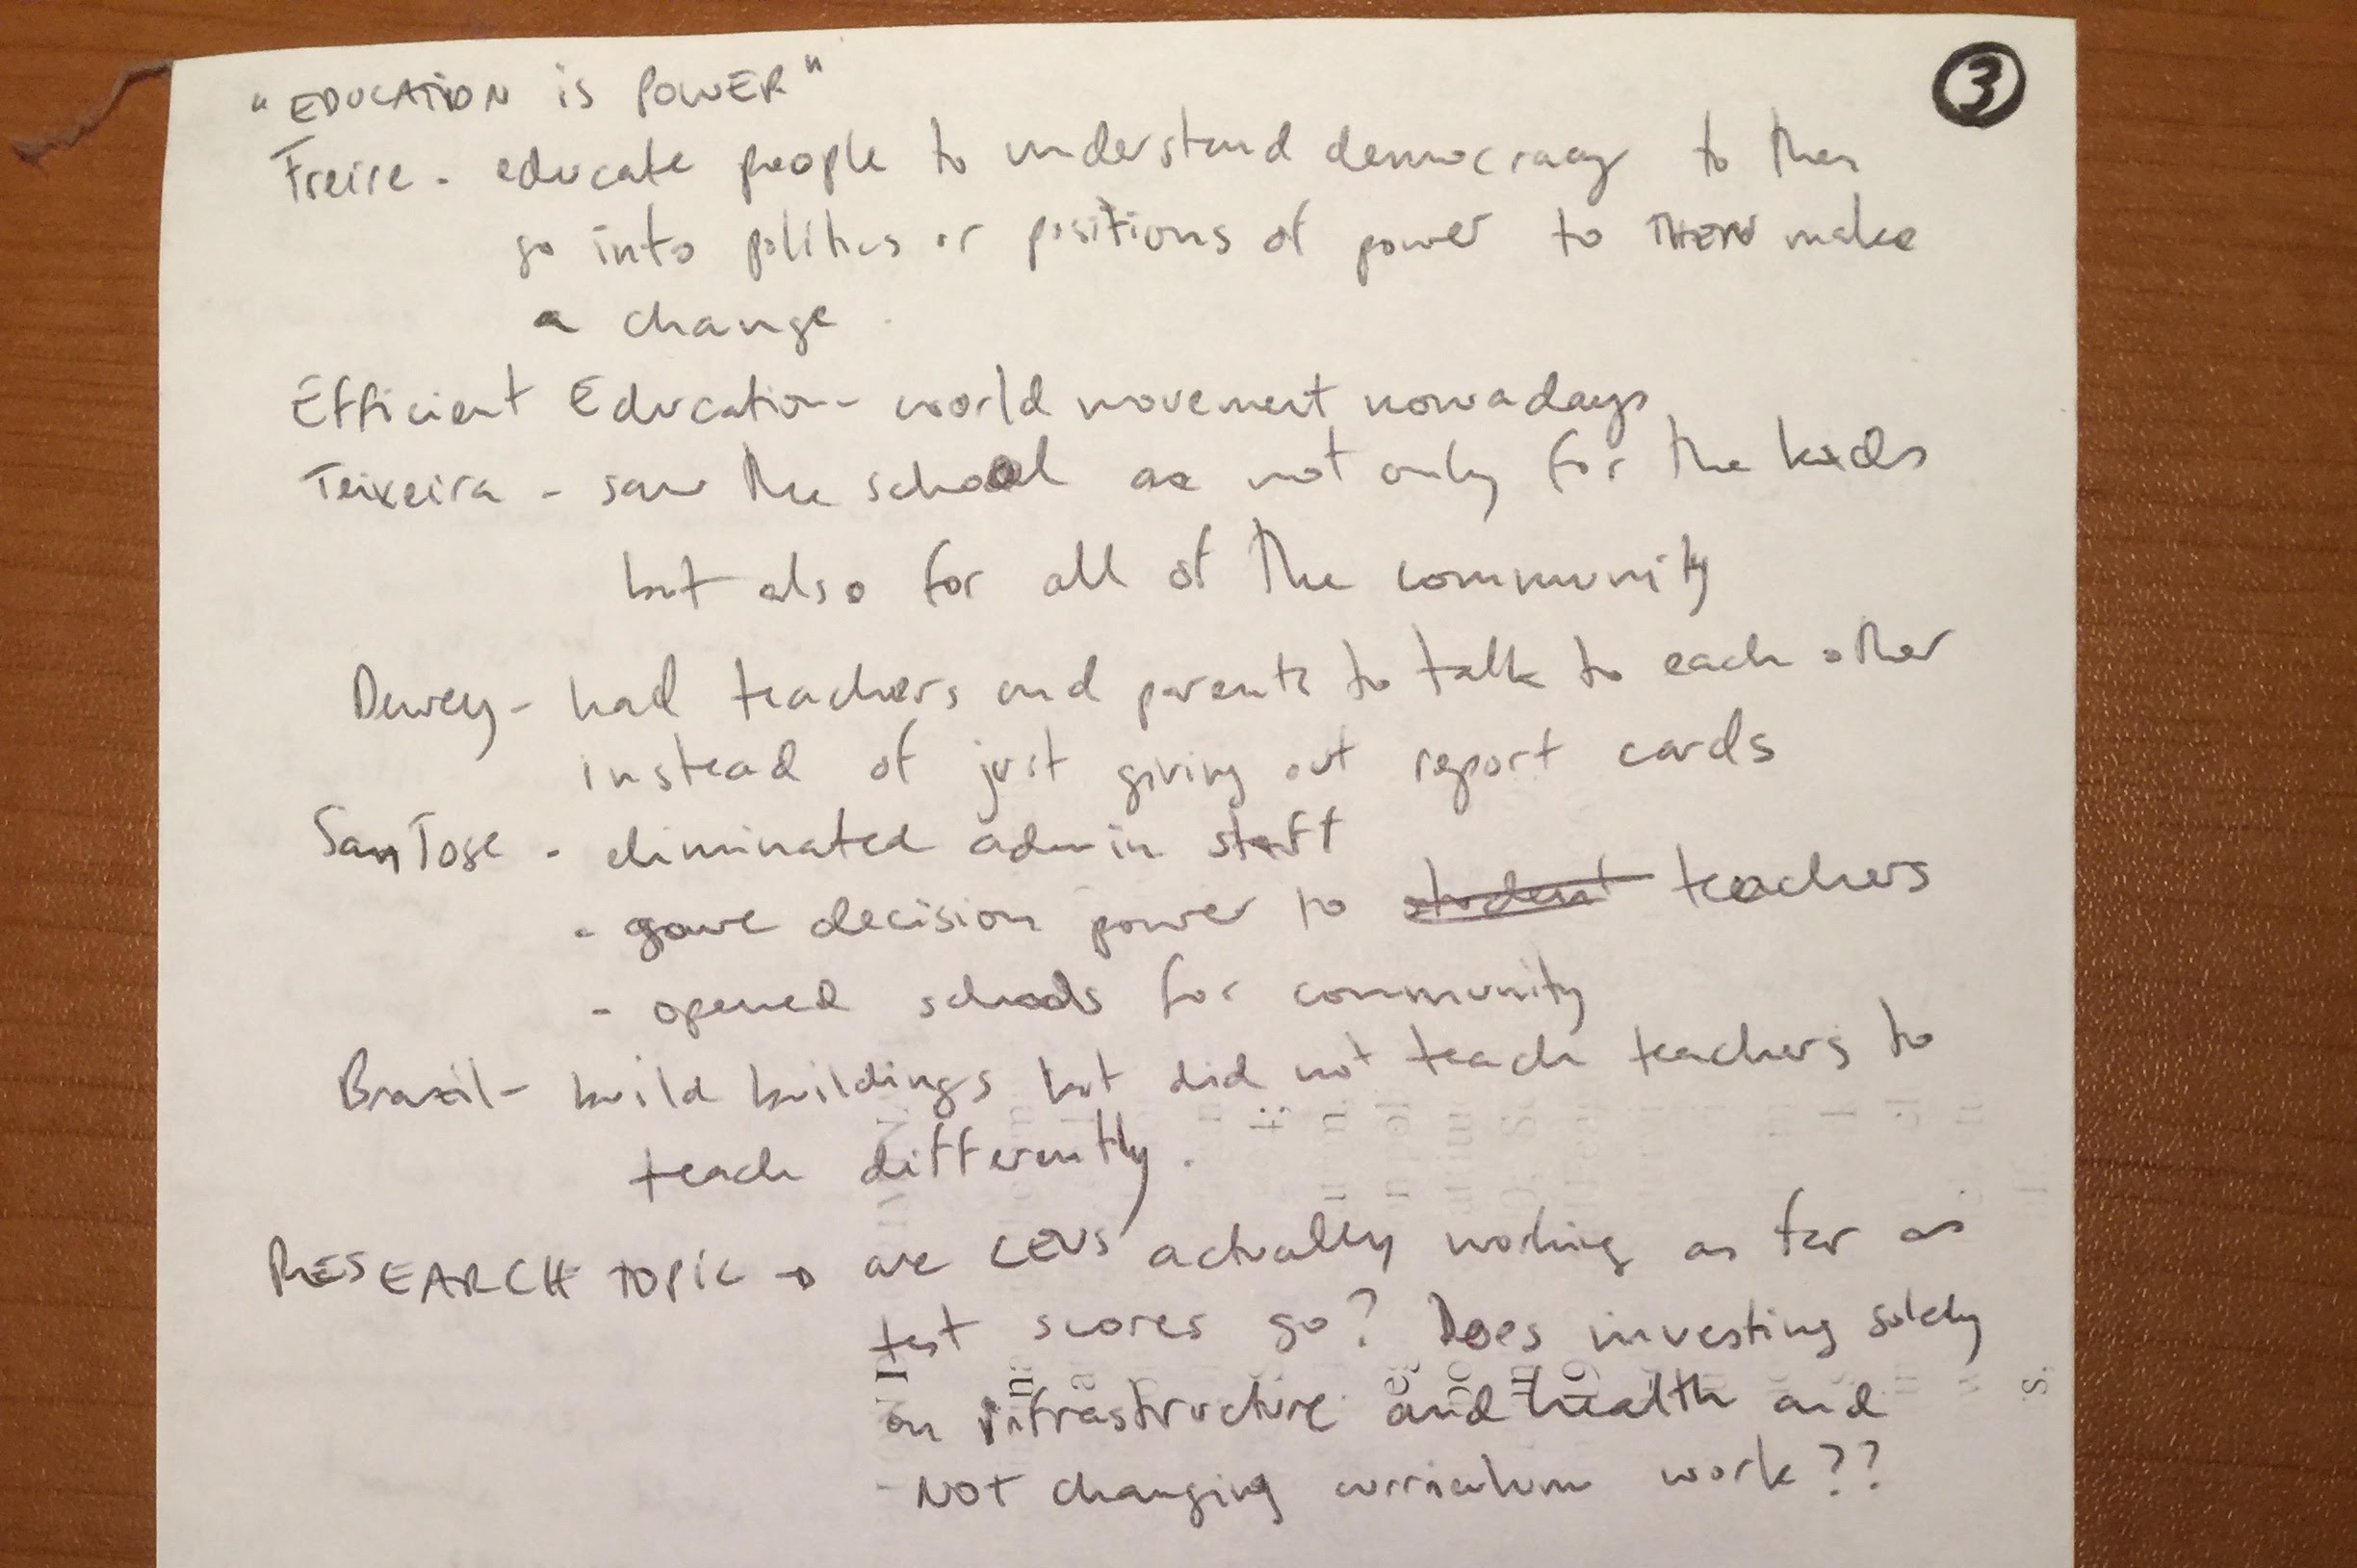 "EDUCATION is POWER"
3
Freire - educate people to understand democracy to then
go into politics or positions of power to THEN make
a change
Efficient Education - world movement nowadays
Teixeira - saw the school as not only for the kids
but also for all of the community
Dewey - had teachers and parents to talk to each other
instead of just giving out report cards
San Jose - eliminated admin staff
- gave decision power to student teachers
- opened schools for community
Brazil - build buildings but did not teach teachers to
teach differently.
RESEARCH TOPIC → are CEUS actually working as far as
test scores go? Does investing solely
on infrastructure and health and
NOT changing curriculum work??